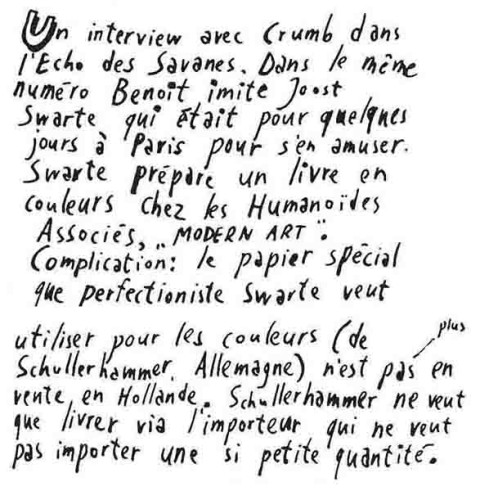 Un interview avec Crumb dans
l'Echo des Savanes. Dans le même
numéro Benoît imite Joost
Swarte qui était pour quelques
jours à Paris pour s'en amuser.
Swarte prépare un livre en
couleurs chez les Humanoïdes
Associés, „MODERN ART".
Complication: le papier spécial
que perfectioniste Swarte veut
utiliser pour les couleurs (de
plus
Schullerhammer, Allemagne) n'est pas en
vente en Hollande. Schullerhammer ne veut
que livrer via l'importeur qui ne veut
pas importer une si petite quantité.